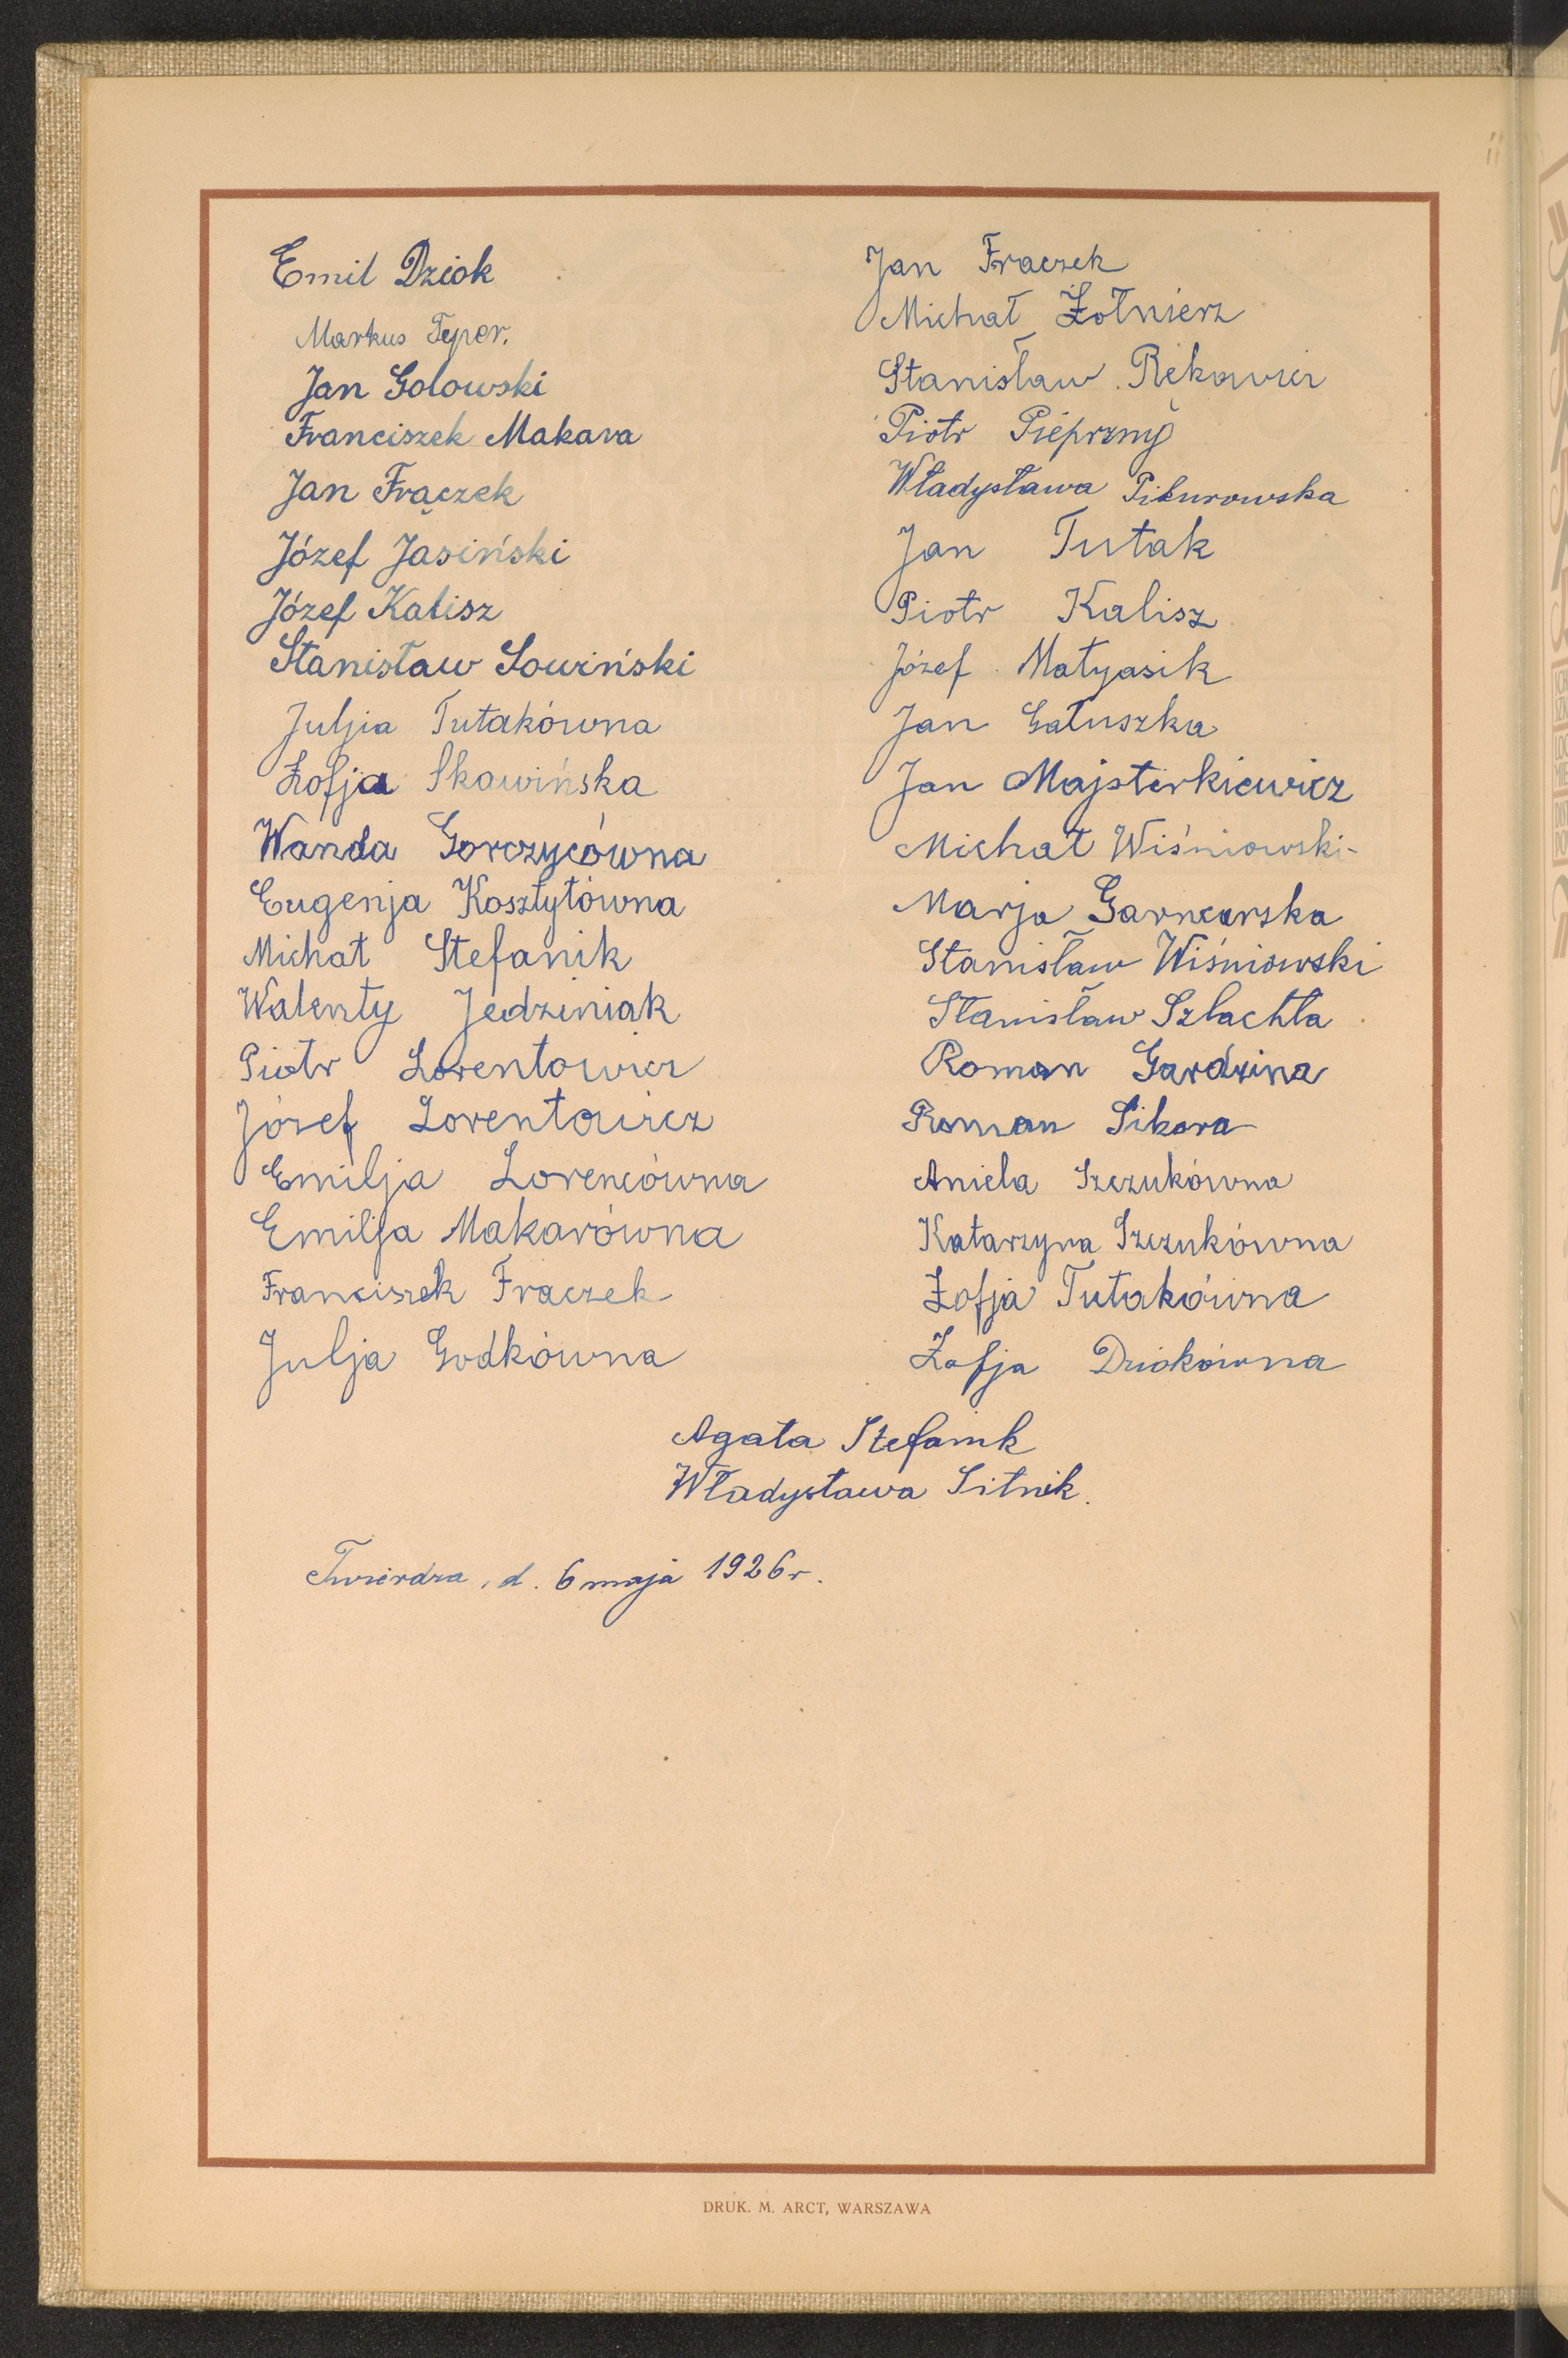 Emil Dziok
Markus Teper.
Jan Golowski
Franciszek Makara
Jan Frączek
Józef Jasiński
Józef Kalisz
Stanisław Sowiński
Juljia Tutakówna
Zofja Skawińska
Wanda Gorczycówna
Eugenja Kosztyłówna
Michał Stefanik
Walenty Jedziniak
Piotr Lorentowicz
Józef Lorentowicz
Emilja Lorencówna
Emilja Makarówna
Franciszek Fraczek
Julja Godkówna
Jan Fraczek
Michał Żołnierz
Stanisław Rękawicz
Piotr Pieprzny
Władysława
Jan Tutak
Piotr Kalisz
Józef Matyasik
Jan Gałuszka
Jan Majsterkiewicz
Michał Wiśniowski
Marja Garncarska
Stanisław Wiśniowski
Stanisław Szlachta
Roman Gardzina
Roman Sikora
Aniela Szczukówna
Katarzyna Szczukówna
Zofja Tutakówna
Zofja Dziokówna
Agata Stefanik
Władysława Sitnik.
Twierdza, d. 6 maja 1926 r.
DRUK. M. ARCT, WARSZAWA